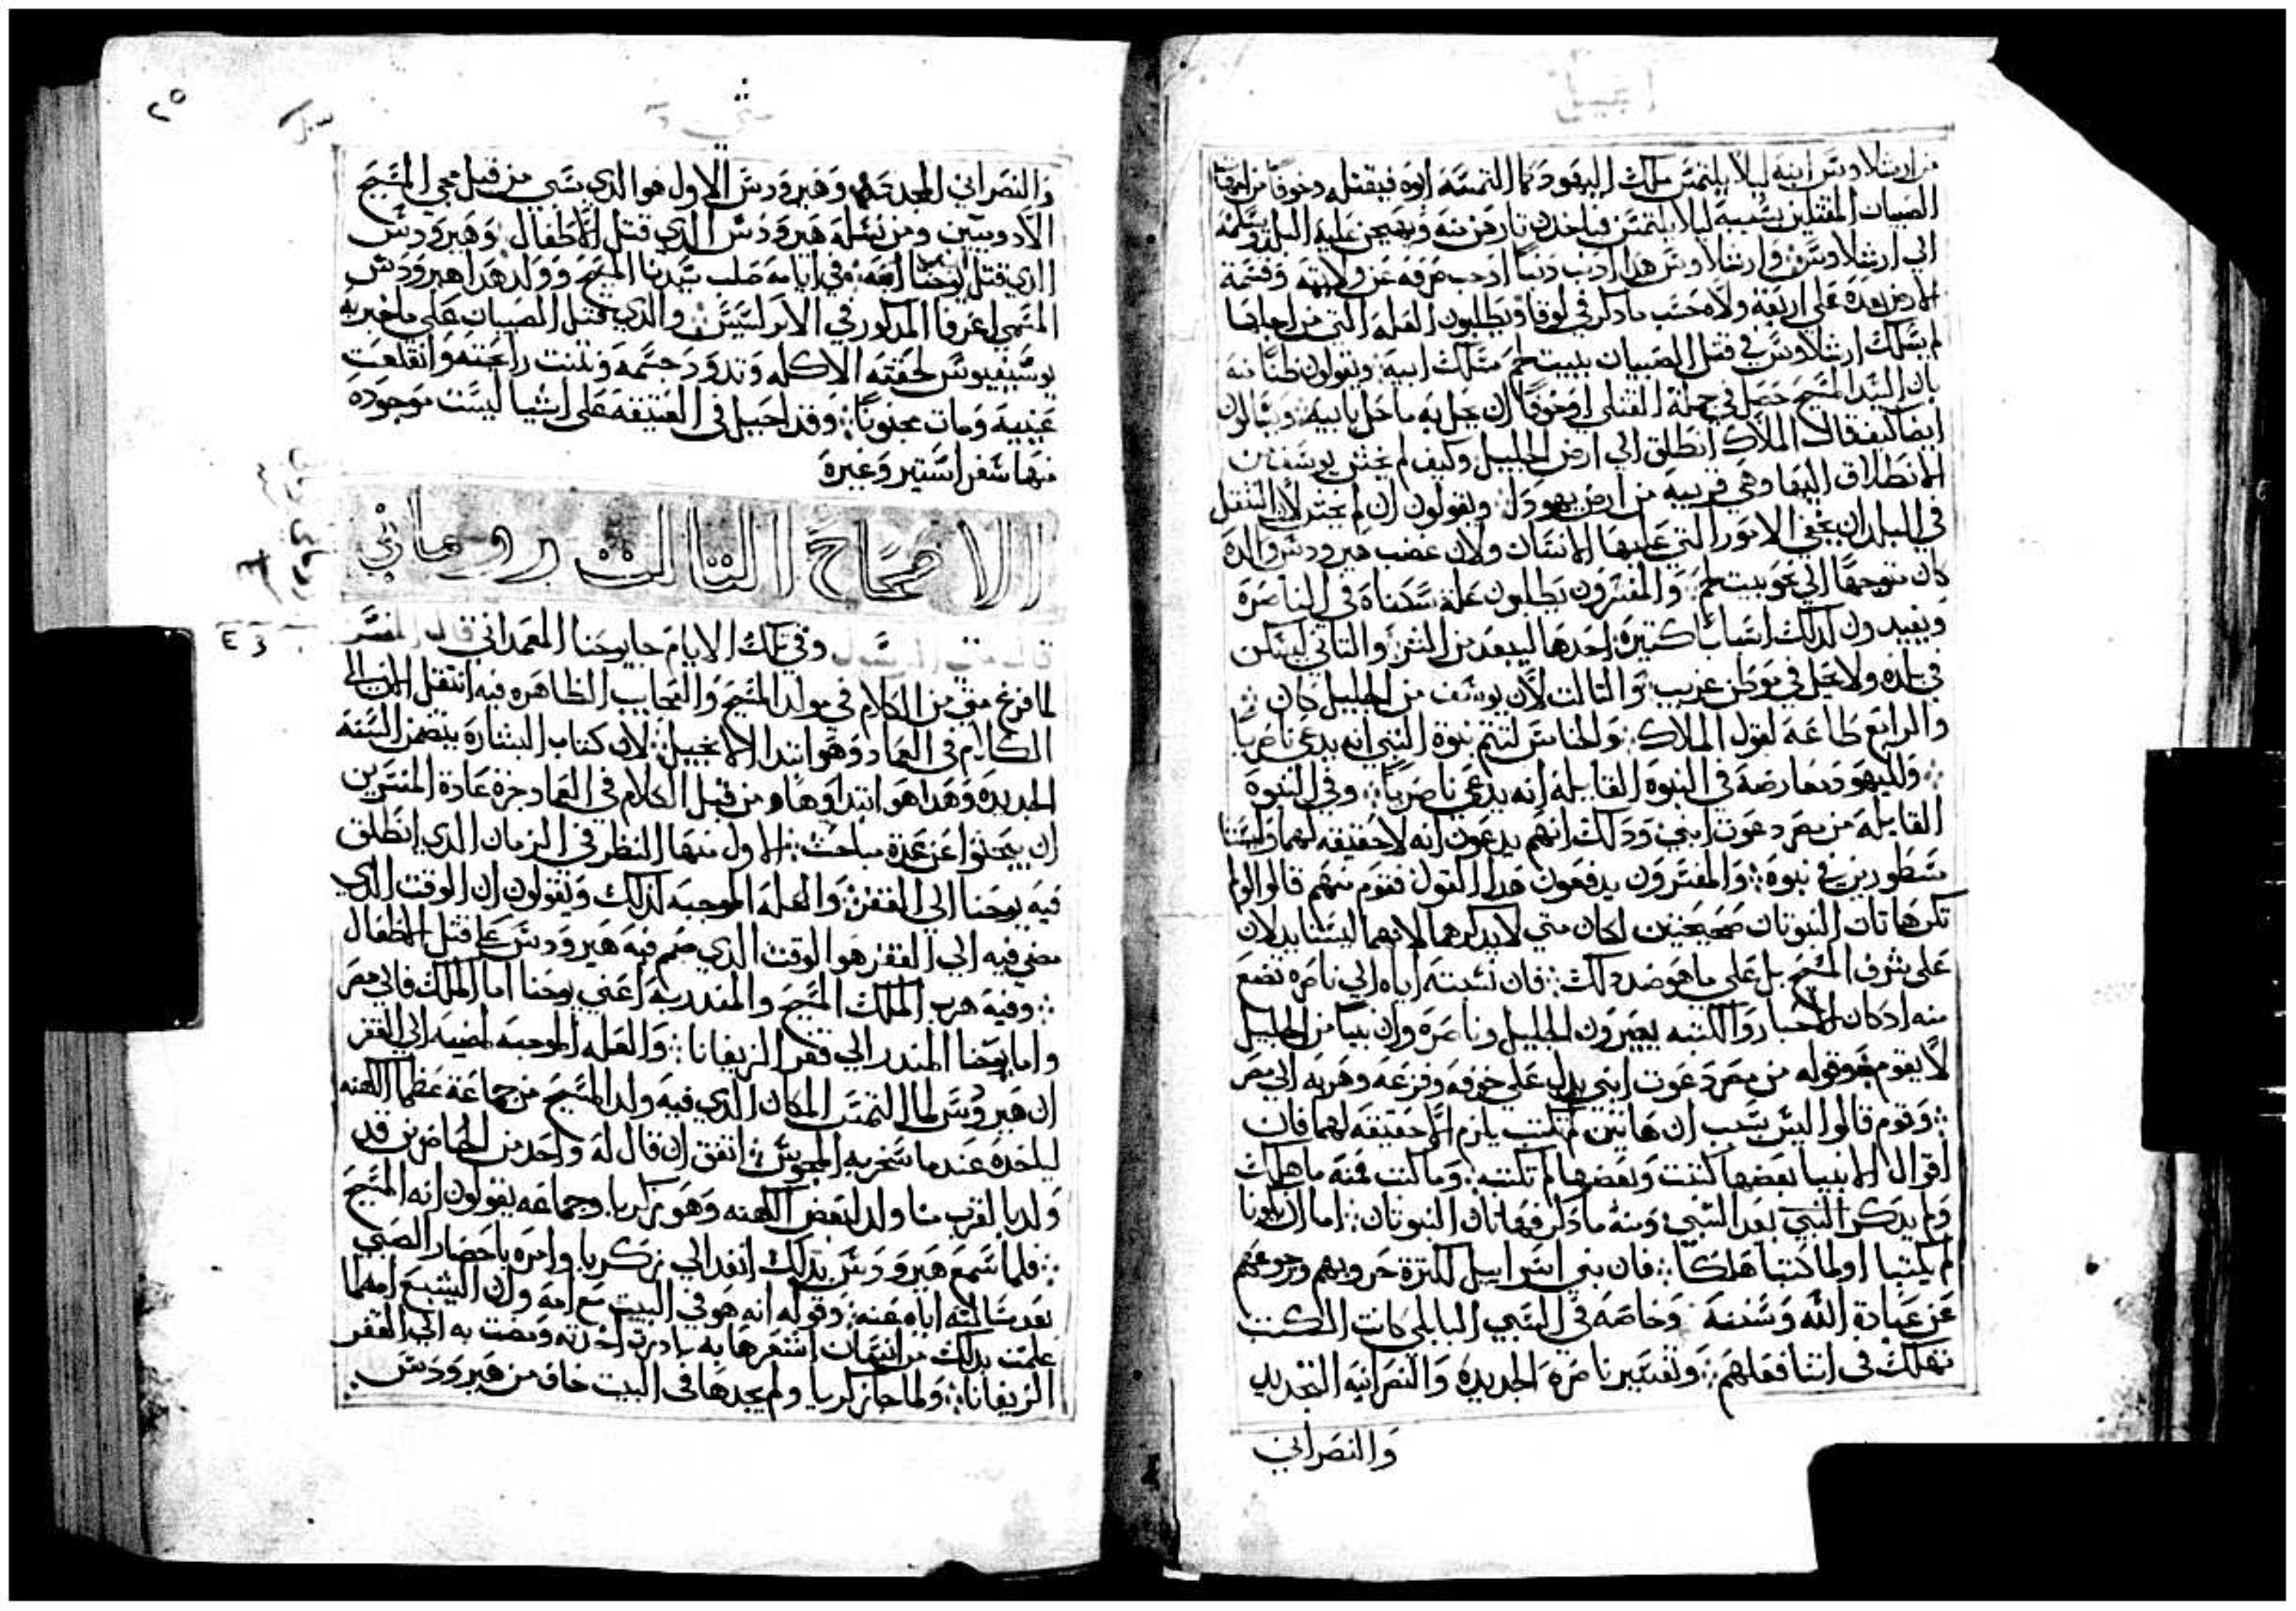 انجيل
من ارشلاوس ابنه ليلا يلتمس ملك اليهود كما التمسه ابوه فيقتله وخوفا من
الصبيان المقتلين بسببه ليلا يلتمس فياخدون تارهم منه ويهيجن عليه البلد
الي ارشلاوس وارشلاوس هدا ادنب دنبا اوجب صرفه عن ولايته وقسمة
الارض بعده علي اربعة ولاه حسب ما دكر في لوقا ويطلبون العله التي من اجلها
لم يسلك ارشلاوس في قتل الصبيان ببيت لحم مسلك ابيه ويقولون ظنا منه
بان السيد المسيح حصل في جملة القتلي او خوفا ان يحل به ما حل بابيه ويسالون
ايضا كيف قال الملاك انطلق الي ارض الجليل وكيف لم يخش يوسف من
الانطلاق اليها وهي قريبه من ارض يهودا ويقولون ان لم يخش لان التنقل
في البلدان يخفي الامور التي عليها الانسان ولان غضب هيرودس والده
كان متوجها الي نحو بيت لحم والمفسرون يطلبون علة سكناه في الناصره
ويفيدون لدلك اسبابا كتيره احدها ليبعد من الشر والتاني ليسكن
في بلده ولا يحل في موطن غريب والتالت لان يوسف من الجليل كان
والرابع طاعه لقول الملاك والخامس لتتم نبوة النبي انه يدعي ناصريا
ولليهود معارضه في النبوة القايله انه يدعي ناصريا وفي النبوة
القايله من مصر دعوت ابني ودلك انهم يدعون انه لا حقيقه لهما وليستا
مسطورتين في نبوة والمفسرون يدفعون هدا القول فقوم منهم قالوا لو لم
تكن هاتان النبوتان صحيحتين لكان متي لا يدكرهما لانهما ليستا يدلان
علي شرف المسيح بل علي ما هو ضد دلك فان نسبته اياه الي ناصره تضع
منه ادكان الاحبار والكتبه يعيرون الجليل وناصره وان نبيا من الجليل
لا يقوم وقوله من مصر دعوت ابني يدل علي خوفه وفزعه وهربه الي مصر
وقوم قالوا ليس بسبب ان هاتين لم تكتب يلزم الا حقيقه لهما فان
اقوال الانبيا بعضها كتبت وبعضها لم تكتب وما كتب فمنه ما هلك
ولم يدكر النبي بعد السبي ومنه ما دكر فهاتان النبوتان اما ان يكونا
لم يكتبا او لما كتبا هلكا فان بني اسراييل لكترة حروبهم ورجوعهم
عن عبادة الله وسننه وخاصه في السبي البابلي كانت الكتب
تهلك في اتنا فعلهم وتفسير ناصرة الجديده والنصرانيه التجديد
والنصراني
متي
٢٥
والنصراني المجدد وهيرودس الاول هو الدي سبي من قبل مجي المسيح
الادوميين ومن نسله هيرودس الدي قتل الاطفال وهيرودس
الدي قتل يوحنا ابنه وفي ايامه صلب سيدنا المسيح وولد هدا هيرودس
المسمي اغرفا المدكور في الابركسيس والدي قتل الصبيان علي ما خبر به
يوسيفيوس لحقته الاكله وتدود جسمه ونتنت رايحته وانقلعت
عينيه ومات مجنونا وقد احيل في العتيقه علي اشيا ليست موجوده
منها سفر استير وغيره
الاصحاح التالت روماني
قال متي الرسول وفي تلك الايام جا يوحنا المعمداني قال المفسر
لما فرغ متي من الكلام في مولد المسيح والعجايب الظاهره فيه انتقل الان الي
الكلام في العماد وهو ابتدا الانجيل لان كتاب البشاره يتضمن السنه
الجديده وهدا هو ابتداوها ومن قبل الكلام في العماد جرة عادة المفسرين
ان يبحتوا عن عدة مباحت الاول منها النظر في الزمان الدي انطلق
فيه يوحنا الي القفر والعله الموجبه لدلك ويقولون ان الوقت الدي
مضي فيه الي القفر هو الوقت الدي صمم فيه هيرودس علي قتل الاطفال
وفيه هرب الملك المسيح والمندر به اعني يوحنا اما الملك فالي مصر
واما يوحنا المندر الي قفر الزيفانا والعله الموجبه لمضيه الي القفر
ان هيرودس لما التمس المكان الدي فيه ولد المسيح من جماعة عظما الكهنه
لياخده عندما سخر به المجوس اتفق ان قال له واحد من الحاضرين قد
ولد بالقرب منا ولد لبعض الكهنه وهو زكريا وجماعه يقولون انه المسيح
فلما سمع هيرودس بدلك انفد الي زكريا وامره باحضار الصبي
بعد مسالته اياه عنه وقوله انه هو في البيت مع امه وان اليشبع امه لما
علمت بدلك من انسان اشعرها به بادرت اخدته ومضت به الي القفر
الزيفانا ولما جا زكريا ولم يجدها في البيت خاف من هيرودس